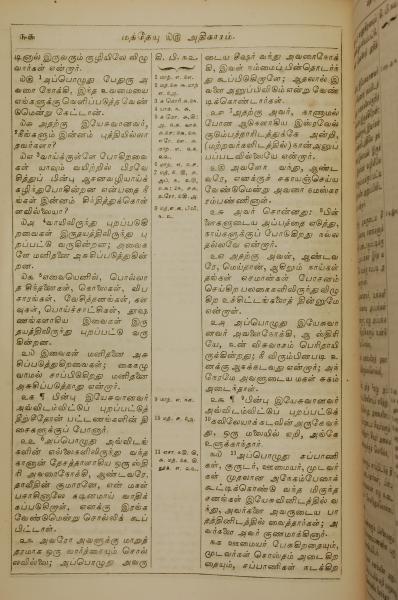 மத்தேயு ௰௫ அதிகாரம்.
டினால் இருவரும் குழியிலே விழு
வார்கள் என்றார்.
௰௫ அப்பொழுது பேதுரு அ
வரை நோக்கி, இந்த உவமையை
எங்களுக்கு வெளிப்படுத்தவேண்
டுமென்று கேட்டான்.
௰௬ அதற்கு இயேசுவானவர்,
நீங்களும் இன்னம் புத்தியில்லா
தவர்களா?
௰௭ வாய்க்குள்ளே போகிறவை
கள் யாவும் வயிற்றில் பிரவே
சித்துப் பின்பு ஆசனவழியாய்க்
கழிந்துபோகின்றன என்பதை நீ
ங்கள் இன்னம் சிந்தித்துக்கொள்
ளவில்லையா?
௰௮ வாயிலிருந்து புறப்படுகி
றவைகள் இருதயத்திலிருந்து பு
றப்பட்டு வருகின்றன; அவைக
ளே மனிதனை அசுசிப்படுத்துகின்
றன.
௰௯ எவையெனில், பொல்லா
த சிந்தனைகள், கொலைகள், விப
சாரங்கள், வேசித்தனங்கள், கள
வுகள், பொய்ச்சாட்சிகள், தூஷ
ணங்களாகிய இவைகள் இரு
தயத்திலிருந்து புறப்பட்டு வரு
கின்றன.
௨௰ இவைகள் மனிதனை அசு
சிப்படுத்துகிறவைகள்; கைகழு
வாமல் சாப்பிடுகிறது மனிதனை
அசுசிப்படுத்தாது என்றார்.
௨௧ ¶ பின்பு இயேசுவானவர்
அவ்விடம்விட்டுப் புறப்பட்டுத்
தீறுசீதோன் பட்டணங்களின் தி
சைகளுக்குப் போனார்.
௨௨ அப்பொழுது அவ்விடங்
களின் எல்லைகளிலிருந்து வந்த
கானான் தேசத்தாளாகிய ஒரு ஸ்திரீ
அவரைநோக்கி, ஆண்டவரே,
தாவீதின் குமாரனே, என் மகள்
பசாசினாலே கடினமாய் வாதிக்
கப்படுகிறாள், எனக்கு இரங்க
வேண்டுமென்று சொல்லிக் கூப்
பிட்டாள்.
௨௩ அவரோ அவளுக்கு மாறுத்
தரமாக ஒரு வார்த்தையும் சொல்
லவில்லை; அப்பொழுது அவரு
டைய சீஷர் வந்து அவரைநோக்
கி, இவள் நம்மைப் பின்தொடர்ந்
து கூப்பிடுகிறாளே; ஆதலால் இ
வளை அனுப்பிவிடும் என்று வேண்
டிக்கொண்டார்கள்.
௨௪ அதற்கு அவர், காணாமல்
போன ஆடுகளாகிய இஸ்ரவேல்
குடும்பத்தாரிடத்துக்கே அன்றி,
(மற்றவர்களிடத்தில்) நான் அனுப்
பப்படவில்லையே என்றார்.
௨௫ அவளோ வந்து, ஆண்ட
வரே, எனக்குச் சகாயஞ்செய்ய
வேண்டுமென்று அவரை நமஸ்கா
ரம்பண்ணினாள்.
௨௬ அவர் சொன்னது: பின்
ளைகளுடைய அப்பத்தை எடுத்து,
நாய்களுக்குப் போடுகிறது நல்ல
தல்லவே என்றார்.
௨௭ அதற்கு அவள், ஆண்டவ
ரே, மெய்தான், ஆகிலும் நாய்கள்
தங்கள் எசமான்கள் போசனம்
செய்கிற பலகைகளிலிருந்து விழுகு
கிற உச்சிட்டங்களைத் தின்னுமே
என்றாள்.
௨௮ அப்பொழுது இயேசுவா
னவர் அவளைநோக்கி, ஆ ஸ்திரீ
யே, உன் விசுவாசம் பெரிதாயி
ருக்கின்றது; நீ விரும்பினபடி உ
னக்கு ஆகக்கடவது என்றார்; அந்
நேரமே அவளுடைய மகள் சுகம்
அடைந்தாள்.
௨௯ ¶ பின்பு இயேசுவானவர்
அவ்விடம்விட்டுப் புறப்பட்டுக்
கலிலேயாக்கடலின் அருகே வந்
து, ஒரு மலையில் ஏறி, அங்கே
உட்கார்ந்தார்.
௩௰ அப்பொழுது சப்பாணி
கள், குருடர், ஊமையர், முடவர்
கள் முதலான அநேகம்பேரைக்
கூட்டிக்கொண்டு வந்த மிகுந்த
சனங்கள் இயேசுவினிடத்தில் வ
ந்து, அவர்களை அவருடைய பா
தத்தினிடத்தில் வைத்தார்கள்; அ
வர்களை அவர் குணமாக்கினார்.
௩௧ ஊமையர் பேசுகிறதையும்,
முடவர்கள் சொஸ்தம் அடைகிற
தையும், சப்பாணிகள் நடக்கிற